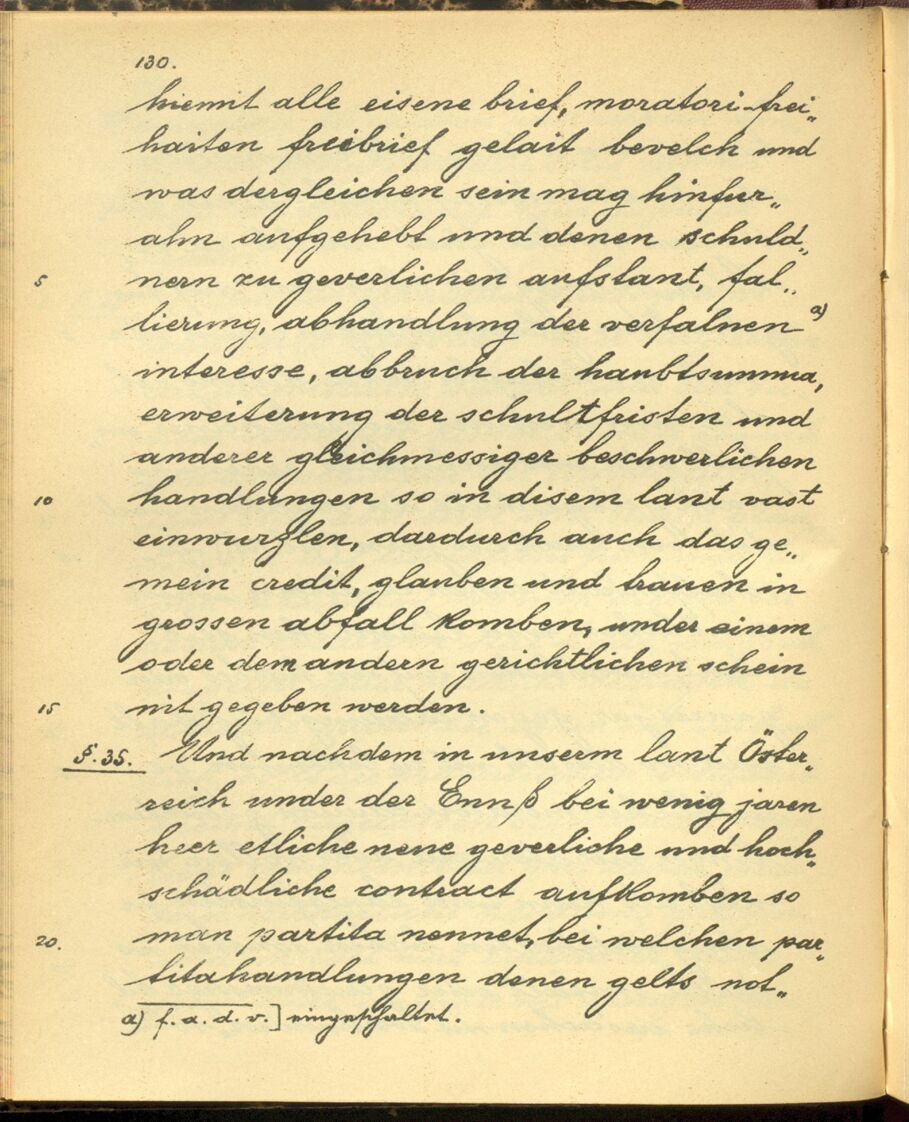 130.
hiemit alle eisene brief, moratori-frei„
haiten freibrief gelait bevelch und
was dergleichen sein mag hinfur„
ahn aufgehebt und denen schuld„
5 nern zu geverlichen aufstant, fal„
lierung, abhandlung der verfalnen a)
interesse, abbruch der haubtsumma,
erweiterung der schultfristen und
anderer gleichmessiger beschwerlichen
10 handlungen so in disem lant vast
einwurzlen, dardurch auch das ge„
mein credit, glauben und trauen in
grossen abfall komben, under einem
oder dem andern gerichtlichen schein
15 nit gegeben werden.
§. 35. Und nachdem in unserm lant Öster„
reich under der Ennß bei wenig jaren
heer etliche neue geverliche und hoch„
schädliche contract aufkomben so
20. man partita nennet, bei welchen par„
titahandlungen denen gelts not„
a) f. a. d. v.] eingeschaltet.